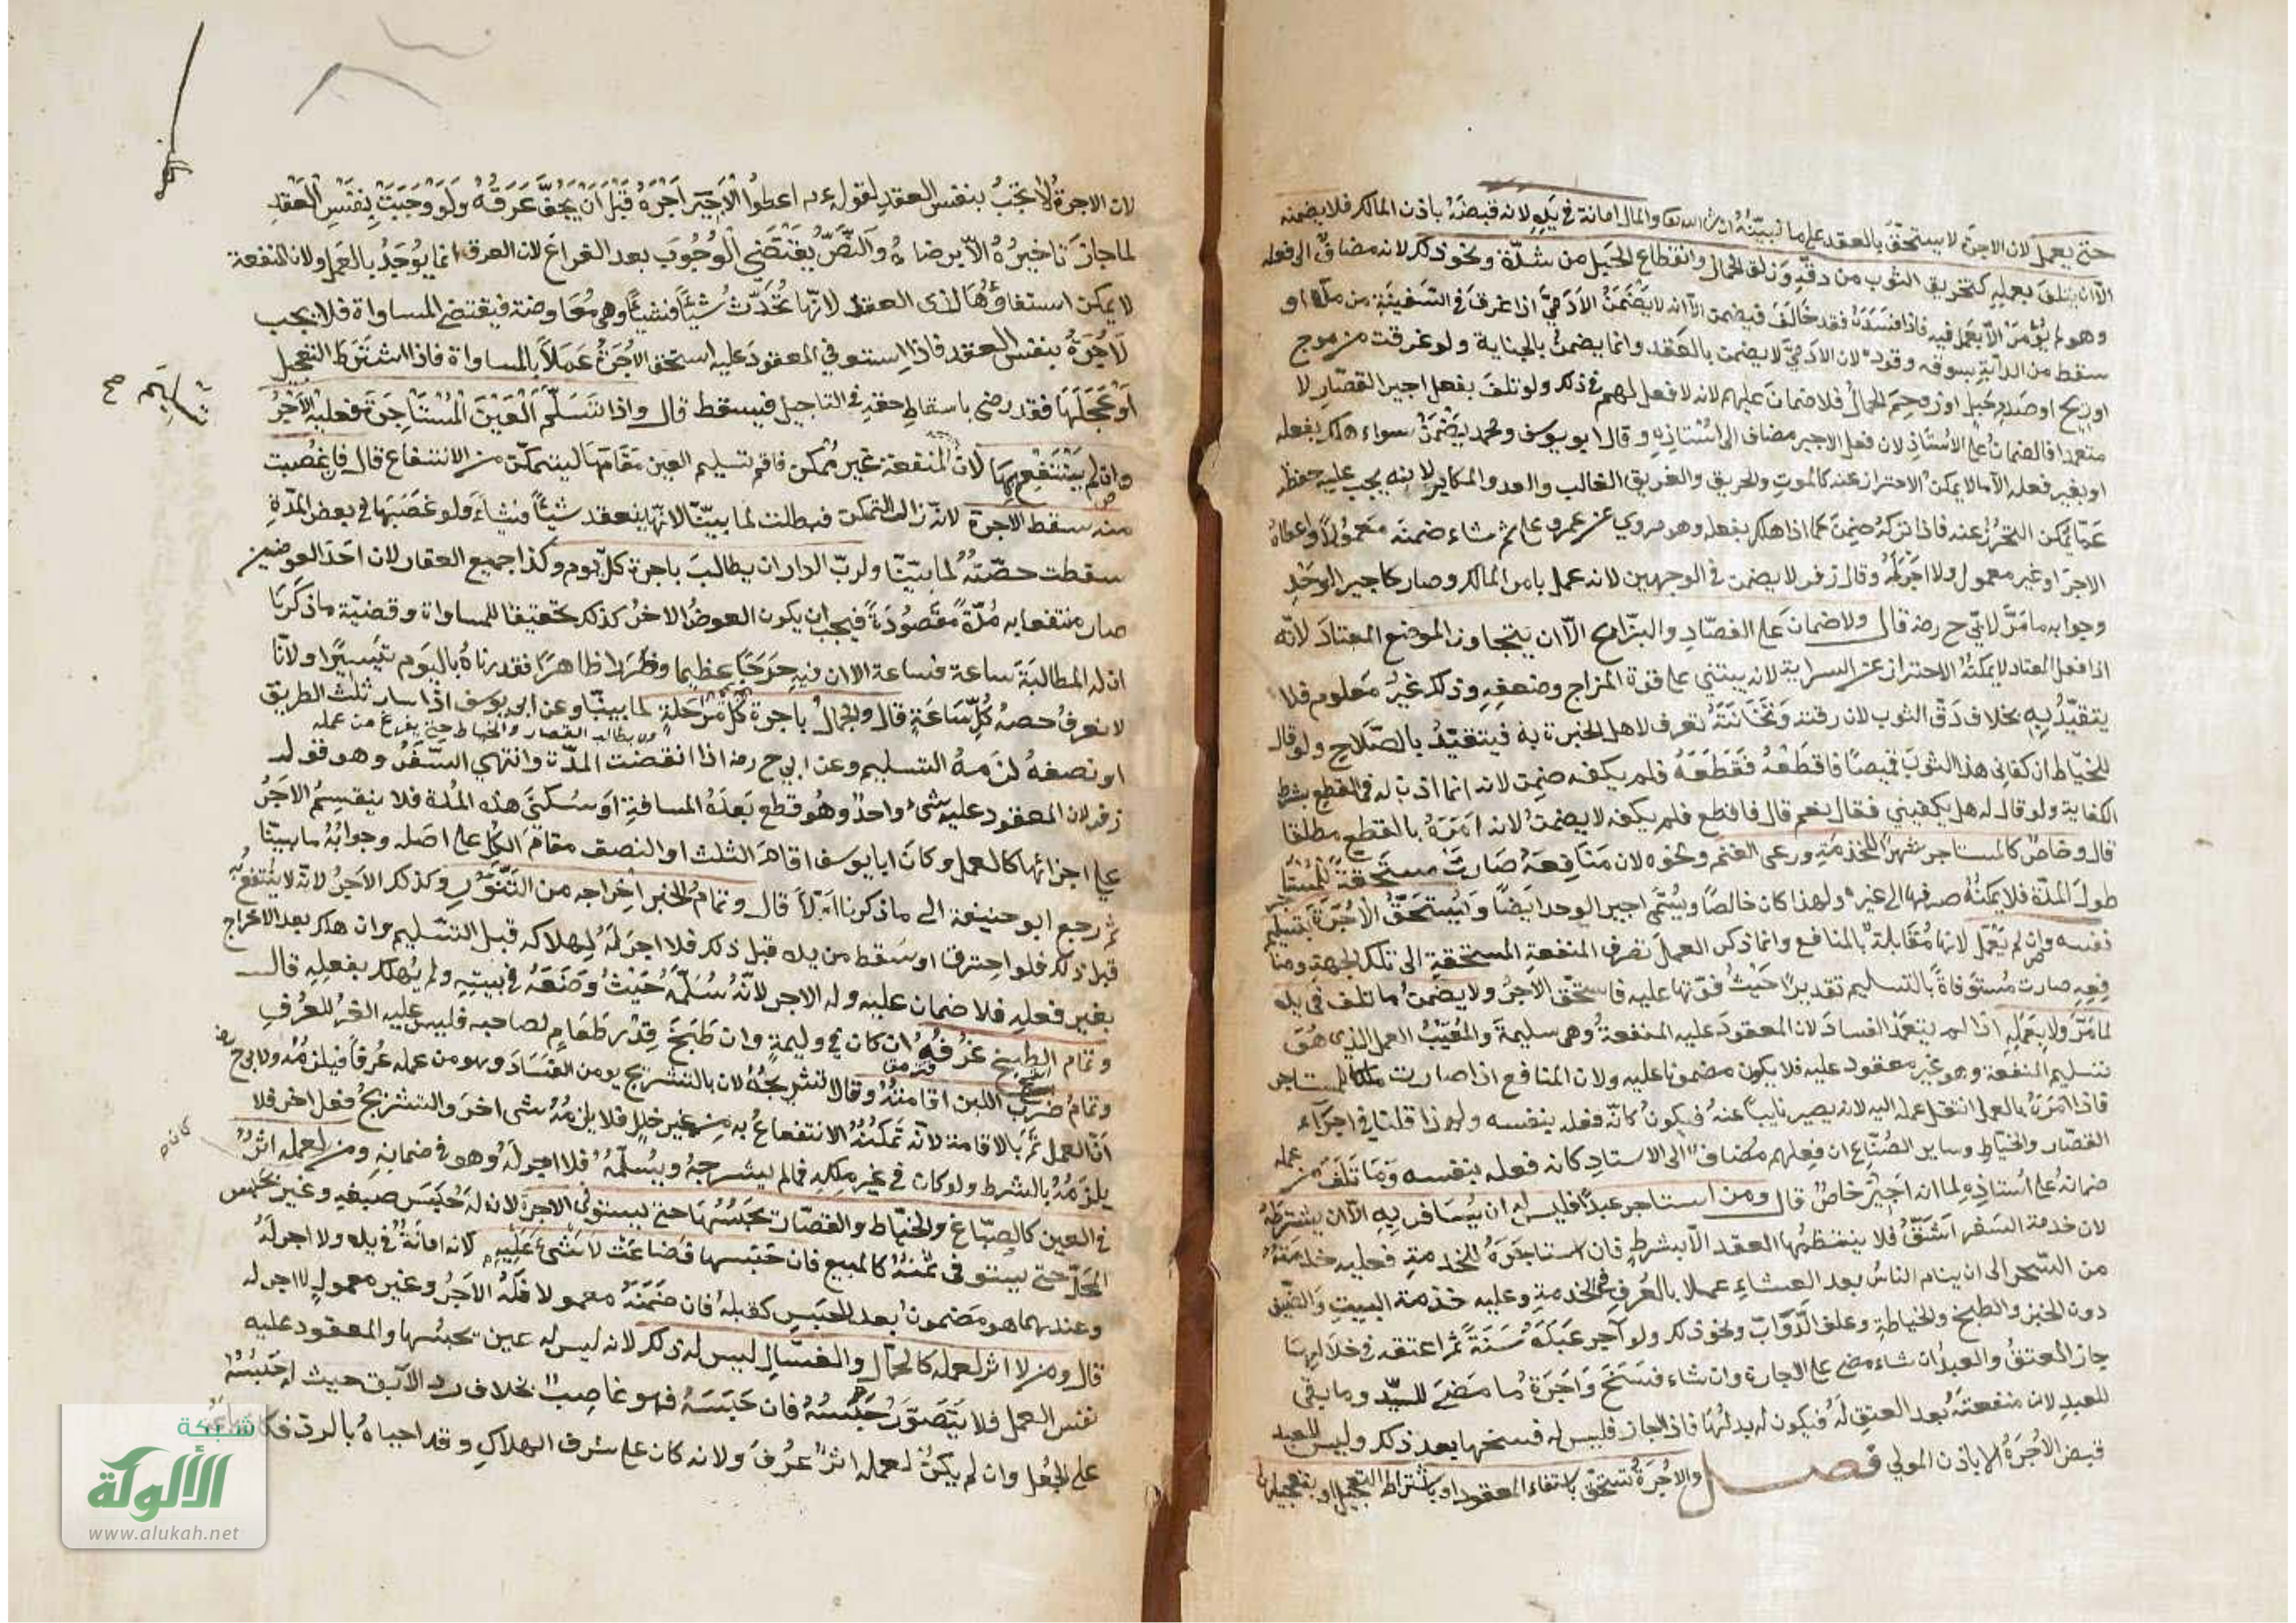 حتى يعمل لان الاجرة لا يستحق بالعقد على ما نبينه ان شاء الله تعا والمال امانة في يده لانه قبضه باذن المالك فلا يضمنه
الا ان يتلف بعمله كتخريق الثوب من دقه وزلق الحمال وانقطاع الحبل من شدة ونحو ذلك لانه مضاف الى فعله
وهو لم يؤمر الا بعمل فيه فاذا افسده فقد خالف فيضمن الا انه لا يضمن الآدمي اذا غرق في السفينة من مده او
سقط من الدابة بسوقه وقوده لان الآدمي لا يضمن بالعقد وانما يضمن بالجناية ولو غرقت من موج
او ريح او صدم جبل او زحم الحمال فلا ضمان عليهم لانه لا فعل لهم في ذلك ولو تلف بفعل اجير القصار لا
متعمدا فالضمان على الاستاذ لان فعل الاجير مضاف الى استاذه وقال ابو يوسف ومحمد يضمن سواء هلك بفعله
او بغير فعله الا ما لا يمكن الاحتراز عنه كالموت والحريق والغريق الغالب والعدو المكابر لانه يجب عليه حفظه
عما يمكن التحرز عنه فاذا تركه ضمن كما اذا هلك بفعله وهو مروي عن عمر وعلي ثم ان شاء ضمنه معمولا واعطاه
الاجر او غير معمول ولا اجر له وقال زفر لا يضمن في الوجهين لانه عمل بامر المالك وصار كاجير الوحد
وجوابه ما مر لابي ح رضه قال ولا ضمان على الفصاد والبزاغ الا ان يتجاوز الموضع المعتاد لانه
اذا فعل المعتاد لا يمكنه الاحتراز عن السراية لانه يبتني على قوة المزاج وضعفه وذلك غير معلوم فلا
يتقيد به بخلاف دق الثوب لان رقته وثخانته تعرف لاهل الخبرة به فيتقيد بالصلاح ولو قال
للخياط ان كفاني هذا الثوب قميصا فاقطعه فقطعه فلم يكفه ضمن لانه انما اذن له في القطع بشرط
الكفاية ولو قال له هل يكفيني فقال نعم قال فاقطع فلم يكفه لا يضمن لانه امره بالقطع مطلقا
قال وخاص كالمستاجر شهرا للخدمة ورعي الغنم ونحوه لان منافعه صارت مستحقة للمستا
طول المدة فلا يمكنه صرفها الى غيره ولهذا كان خالصا ويسمى اجير الوحد ايضا ويستحق الاجرة بتسليم
نفسه وان لم يعمل لانها مقابلة بالمنافع وانما ذكر العمل لصرف المنفعة المستحقة الى تلك الجهة ومنا
فعه صارت مستوفاة بالتسليم تقديرا حيث فوتها عليه فاستحق الاجر ولا يضمن ما تلف في يده
لما مر ولا بعمله اذا لم يتعمد الفساد لان المعقود عليه المنفعة وهي سليمة والمعيب العمل الذي هو
تسليم المنفعة وهو غير معقود عليه فلا يكون مضمونا عليه ولان المنافع اذا صارت ملكا للمستاجر
فاذا امره بالعمل انتقل عمله اليه لانه يصير نايبا عنه فيكون كانه فعله بنفسه ولهذا قلنا في اجراء
القصار والخياط وساير الصناع ان فعلهم مضاف الى الاستاد كانه فعله بنفسه وما تلف من عمله
ضمانه على استاذه لما انه اجير خاص قال ومن استاجر عبدا فليس له ان يسافر به الا ان يشترطه
لان خدمة السفر اشق فلا ينتظمها العقد الا بشرط فان استاجره للخدمة فعليه خدمته
من السحر الى ان ينام الناس بعد العشاء عملا بالعرف في الخدمة وعليه خدمة البيت والضيف
دون الخبز والطبخ والخياطة وعلف الدواب ونحو ذلك ولو آجر عبده سنة ثم اعتقه في خلالها
جاز العتق والعبد ان شاء مضى على الاجارة وان شاء فسخ واجرة ما مضى للسيد وما بقي
للعبد لان منفعته بعد العتق له فيكون له بدلها فاذا اجاز فليس له فسخها بعد ذلك وليس للعبد
قبض الاجرة الا باذن المولى فصل والاجرة تستحق باستفاء المعقود او باشتراط التعجيل او بتعجيلها
لان الاجرة لا تجب بنفس العقد لقوله ءم اعطوا الاجير اجره قبل ان يجف عرقه ولو وجبت بنفس العقد
لما جاز تاخيره الا برضاه والنص يقتضي الوجوب بعد الفراغ لان العرق انما يوجد بالعمل ولان المنفعة
لا يمكن استفاؤها لذى العقد لانها تحدث شيئا فشيئا وهي معاوضة فيقتضي المساواة فلا يجب
الاجرة بنفس العقد فاذا استوفي المعقود عليه استحق الاجرة عملا بالمساواة فاذا اشترط التعجيل
او عجلها فقد رضى باسقاط حقه في التاجيل فيسقط قال واذا تسلم العين المستاجرة فعليه الاجر
وان لم ينتفع بها لان المنفعة غير ممكن فاقم تسليم العين مقامها ليتمكن من الانتفاع قال فان غصبت
منه سقط الاجرة لانه زال التمكن فبطلت لما بينا لانها ينعقد شيئا فشياء ولو غصبها في بعض المدة
سقطت حصته لما بينا ولرب الدار ان يطالب باجرة كل يوم وكذا جميع العقار لان احد العوضين
صار منتفعا به مدة مقصودة فيجب ان يكون العوض الاخر كذلك تحقيقا للمساواة وقضية ما ذكرنا
ان له المطالبة ساعة فساعة الا ان فيه حرجا عظيما وضررا ظاهرا فقدرناه باليوم تيسيرا ولانا
لا نعرف حصة كل ساعة قال والجمال باجرة كل مرحلة لما بينا وعن ابي يوسف اذا سار ثلث الطريق
ولا يطالب القصار والخياط حتى يفرغ من عمله
او نصفه لزمه التسليم وعن ابي ح رضه اذا انقضت المدة وانتهى السفر وهو قول
زفر لان المعقود عليه شيء واحد وهو قطع بعده المسافة او سكنى هذه المدة فلا ينقسم الاجر
على اجزائها كالعمل وكان ابا يوسف اقام الثلث او النصف مقام الكل على اصله وجوابه ما بينا
ثم رجع ابو حنيفة الى ما ذكرنا اولا قال وتمام الخبز اخراجه من التنور وكذلك الاجر لانه لا ينتفع به
قبل ذلك فلو احترق او سقط من يده قبل ذلك فلا اجر له لهلاكه قبل التسليم وان هلك بعد الاخراج
بغير فعله فلا ضمان عليه وله الاجر لانه سلمه حيث وضعه في بيته ولم يهلك بفعله قال
وتمام الطبيخ غرفه ان كان في وليمة وان طبخ قدر طعام لصاحبه فليس عليه الغرف للعرف
وتمام ضرب اللبن اقامته وقالا تشريجه لان بالتشريج يؤمن الفساد وهو من عمله عرفا فيلزمه ولابي ح رضه
ان العمل تم بالاقامة لانه تمكنه الانتفاع به من غير خلل فلا يلزمه شي اخر والتشريج فعل اخر فلا
يلزمه بالشرط ولو كان في غير ملكه فما لم يشرجه ويسلمه فلا اجر له وهو في ضمانه ومن لعمله اثر
في العين كالصباغ والخياط والقصار يحبسها حتى يستوفى الاجرة لان له حبس صبغه وغيره بحبس
المحل حتى يستوفى ثمنه كالمبيع فان حبسها فضاعت لا شيء عليه لانه امانة في يده ولا اجر له
وعندهما هو مضمون بعد الحبس كقبله فان ضمنه معمولا فله الاجر وغير معمول لا اجر له
قال ومن لا اثر لعمله كالحمال والغسال ليس له ذلك لانه ليس له عين يحبسها والمعقود عليه
نفس العمل فلا يتصور حبسه فان حبسه فهو غاصب بخلاف رد الآبق حيث له حبسه
على الجعل وان لم يكن لعمله اثر عرف ولانه كان على شرف الهلاك وقد احياه بالرد
شبكة
الألوكة
www.alukah.net